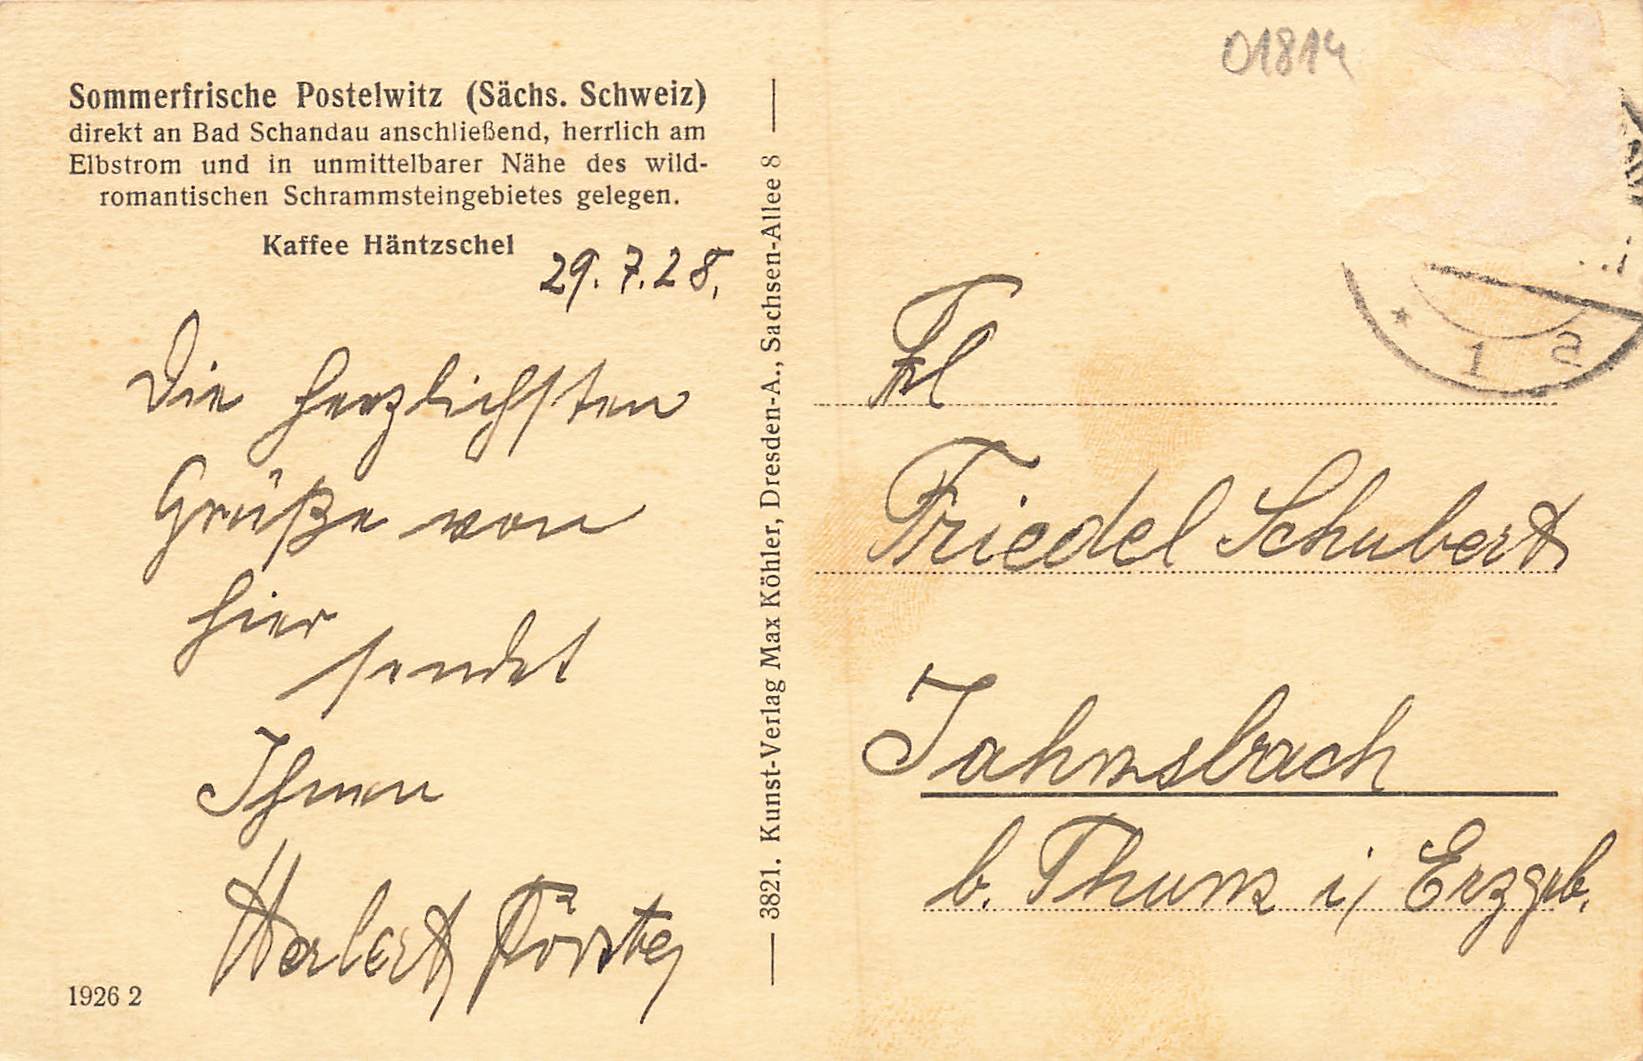 Sommerfrische Postelwitz (Sächs. Schweiz)
direkt an Bad Schandau anschließend, herrlich am
Elbstrom und in unmittelbarer Nähe des wild-
romantischen Schrammsteingebietes gelegen.
Kaffee Häntzschel
29.7.28.
Die herzlichsten
Grüße von
hier
sendet
Ihnen
Herbert Förster
1926 2
3821. Kunst-Verlag Max Köhler, Dresden-A., Sachsen-Allee 8
01814
* 1 a
Frl
Friedel Schubert
Jahnsbach
b. Thum i/ Erzgeb.